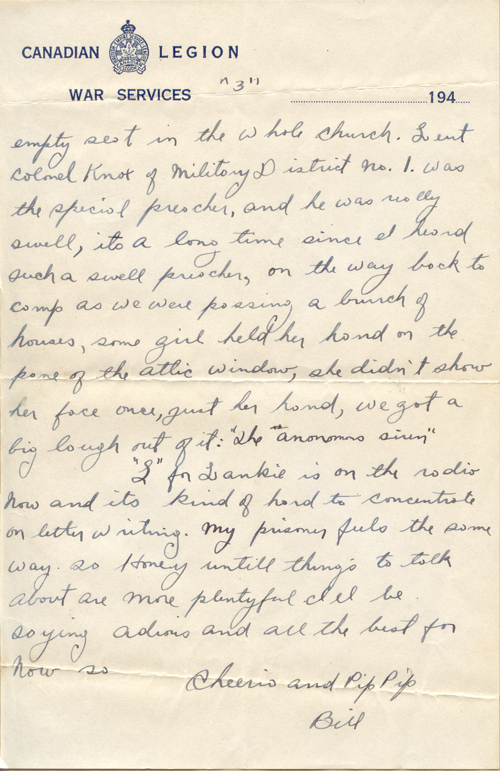 CANADIAN LEGION
WAR SERVICES
"3"
194
empty seat in the whole church. Leut
Colonel Knox of Military District no. 1. was
the special preacher, and he was really
swell, its a long time since I heard
such a swell preacher, on the way back to
camp as we were passing a bunch of
houses, some girl held her hand on the
pane of the attic window, she didn't show
her face once, just her hand, we got a
big laugh out of it: "The "anonomos siren"
"L" for Lankie is on the radio
now and its kind of hard to concentrate
on letter writing. My prisoner feels the same
way. so Honey untill things to talk
about are more plentyful I'll be
saying adious and all the best for
now so
Cheerio and Pip Pip
Bill